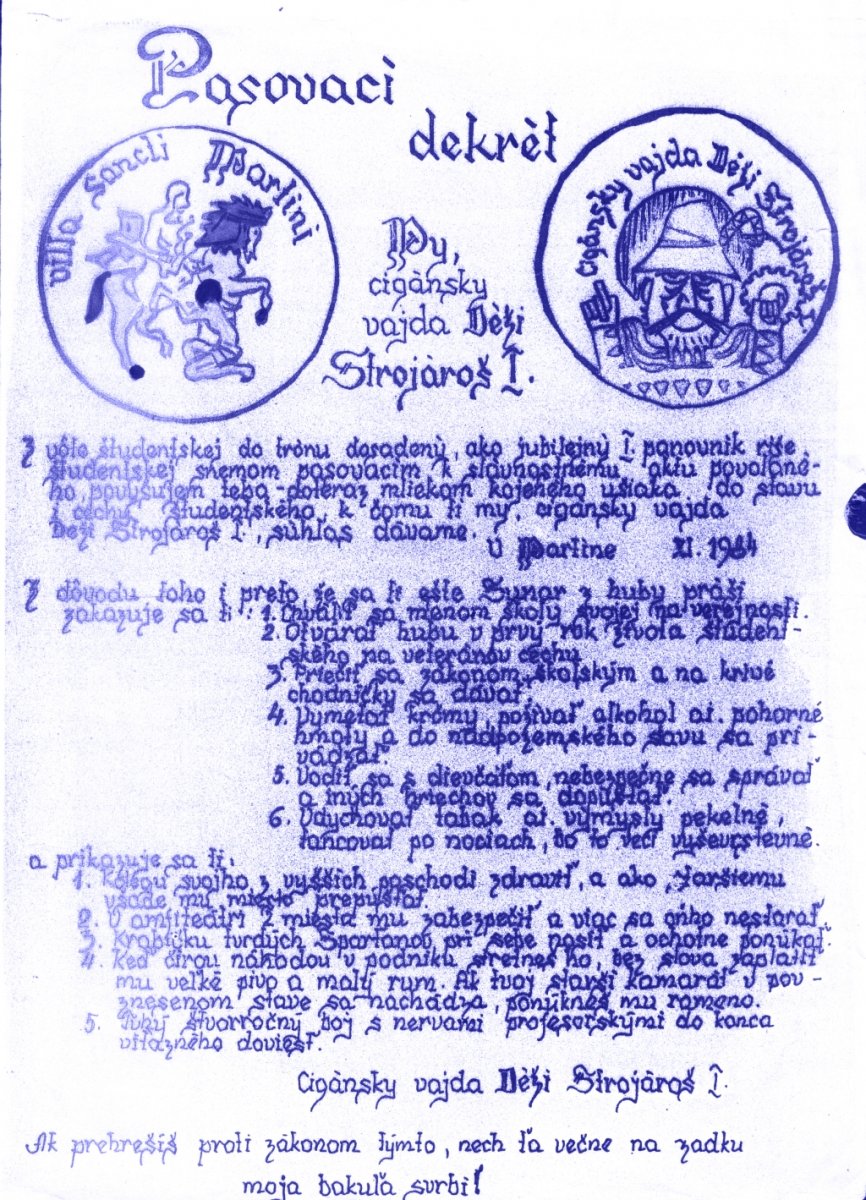 Pasovací
dekrét
villa Sancti Martini
Cigánsky vajda Dèži Strojàroš I.
My,
cigànsky
vajda Dèži
Strojàroš I.
Z vôle študentskej do trònu dosadený, ako jubilejný I. panovník ríše
študentskej snemom pasovacím k slávnostnému aktu povolané-
ho, povyšujem teba doteraz mliekom kojeného ušiaka do stavu
i cechu študentského, k čomu ti my, cigánsky vajda
Deži Strojároš I., súhlas dávame.
V Martine XI. 1984
Z dôvodu toho i preto, že sa ti ešte Sunar z huby práši
zakazuje sa ti: 1. Chváliť sa menom školy svojej na verejnosti.
2. Otvárať hubu v prvý rok života študent-
ského na veteránov cechu
3. Priečiť sa zákonom školským a na krivé
chodníčky sa dávať.
4. Vymetať krčmy, požívať alkohol ai. pohonné
hmoty a do nadpozemského stavu sa pri-
vádzať.
5. Vodiť sa s dievčaťom, nebezpečne sa správať
a iných hriechov sa dopúšťať.
6. Vdychovať tabak ai. výmysly pekelné,
tancovať po nociach, bo to veci vyševrstevné.
a prikazuje sa ti:
1. Kolegu svojho z vyšších poschodí zdraviť, a ako staršiemu
všade mu miesto prepúšťať.
2. V amfiteátri 2 miesta mu zabezpečiť a viac sa oňho nestarať
3. Krabičku tvrdých Spartanov pri sebe nosiť a ochotne ponúkať.
4. Keď čírou náhodou v podniku stretneš ho, bez slova zaplatiť
mu veľké pivo a malý rum. Ak tvoj starší kamarát v pov-
znesenom stave sa nachádza, ponúkneš mu rameno.
5. Tuhý štvorročný boj s nervami profesorskými do konca
víťazného doviesť.
Cigánsky vajda Dèži Strojàroš I.
Ak prehrešíš proti zákonom týmto, nech ťa večne na zadku
moja bakuľa svrbí!